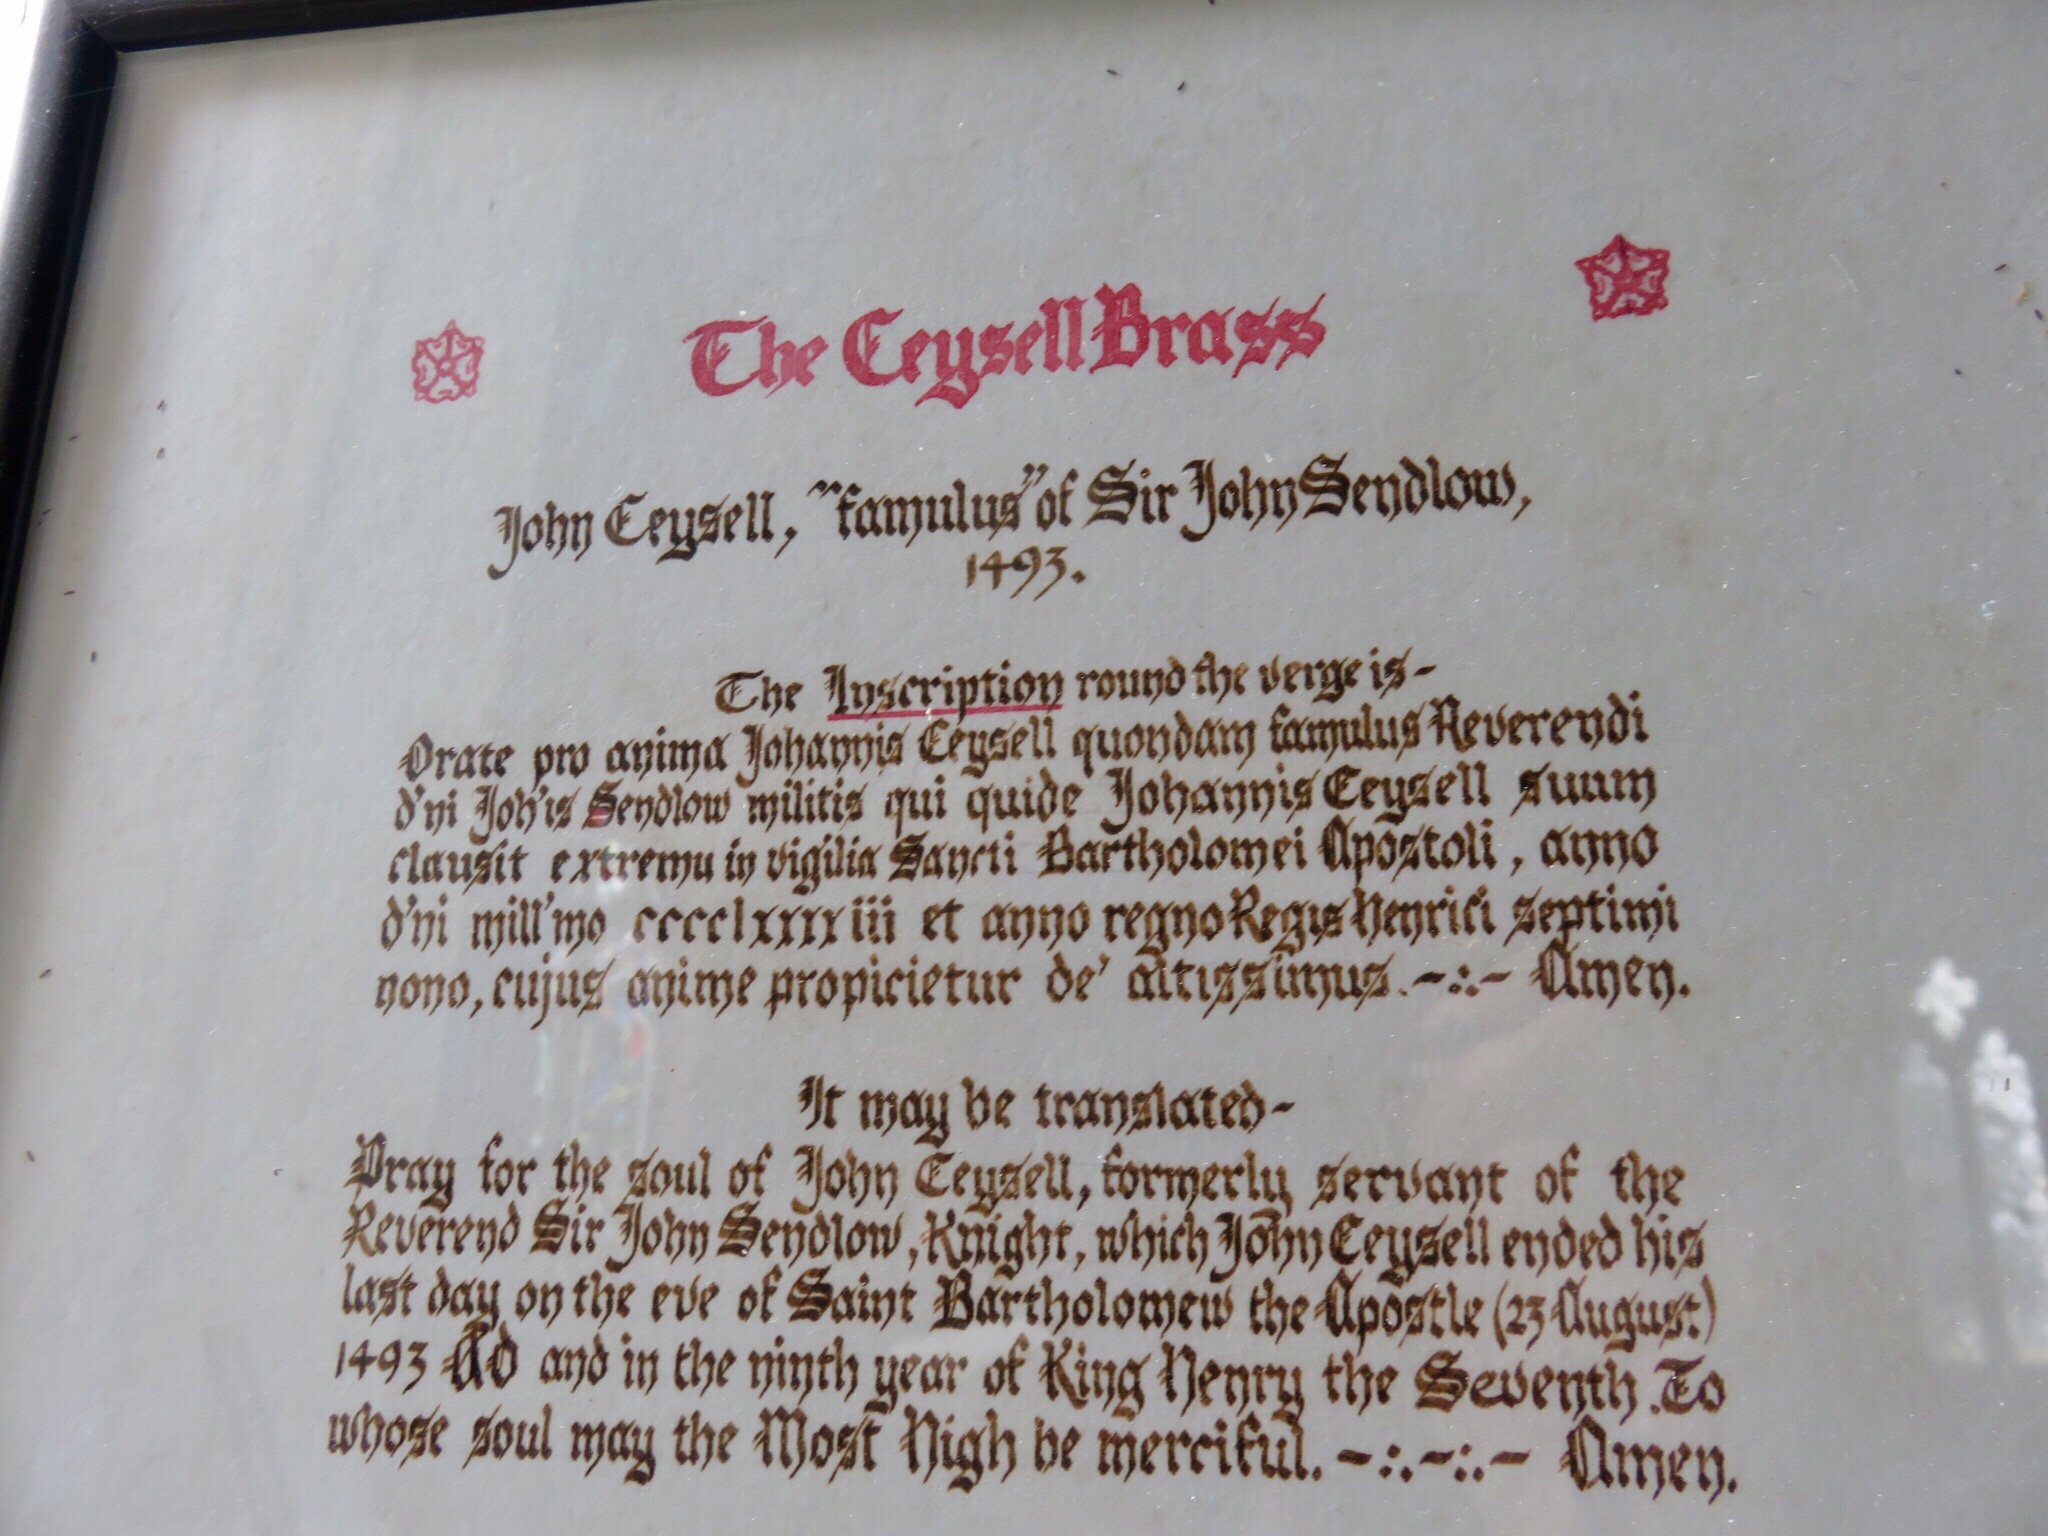 The Ceysell Brass
John Ceysell, "famulus" of Sir John Sendlow,
1493.
The Inscription round the verge is -
Orate pro anima Johannis Ceysell quondam famulus Reverendi
d'ni Joh'is Sendlow militis qui quide Johannis Ceysell suum
clausit extremu in vigilia Sancti Bartholomei Apostoli, anno
d'ni mill'mo cccclxxxxiii et anno regno Regis Henrici septimi
nono, cujus anime propicietur de' altissimus. -:.- Amen.
It may be translated -
Pray for the soul of John Ceysell, formerly servant of the
Reverend Sir John Sendlow, Knight, which John Ceysell ended his
last day on the eve of Saint Bartholomew the Apostle (23 August)
1493 AD and in the ninth year of King Henry the Seventh. To
whose soul may the Most High be merciful. -:.-:.- Amen.